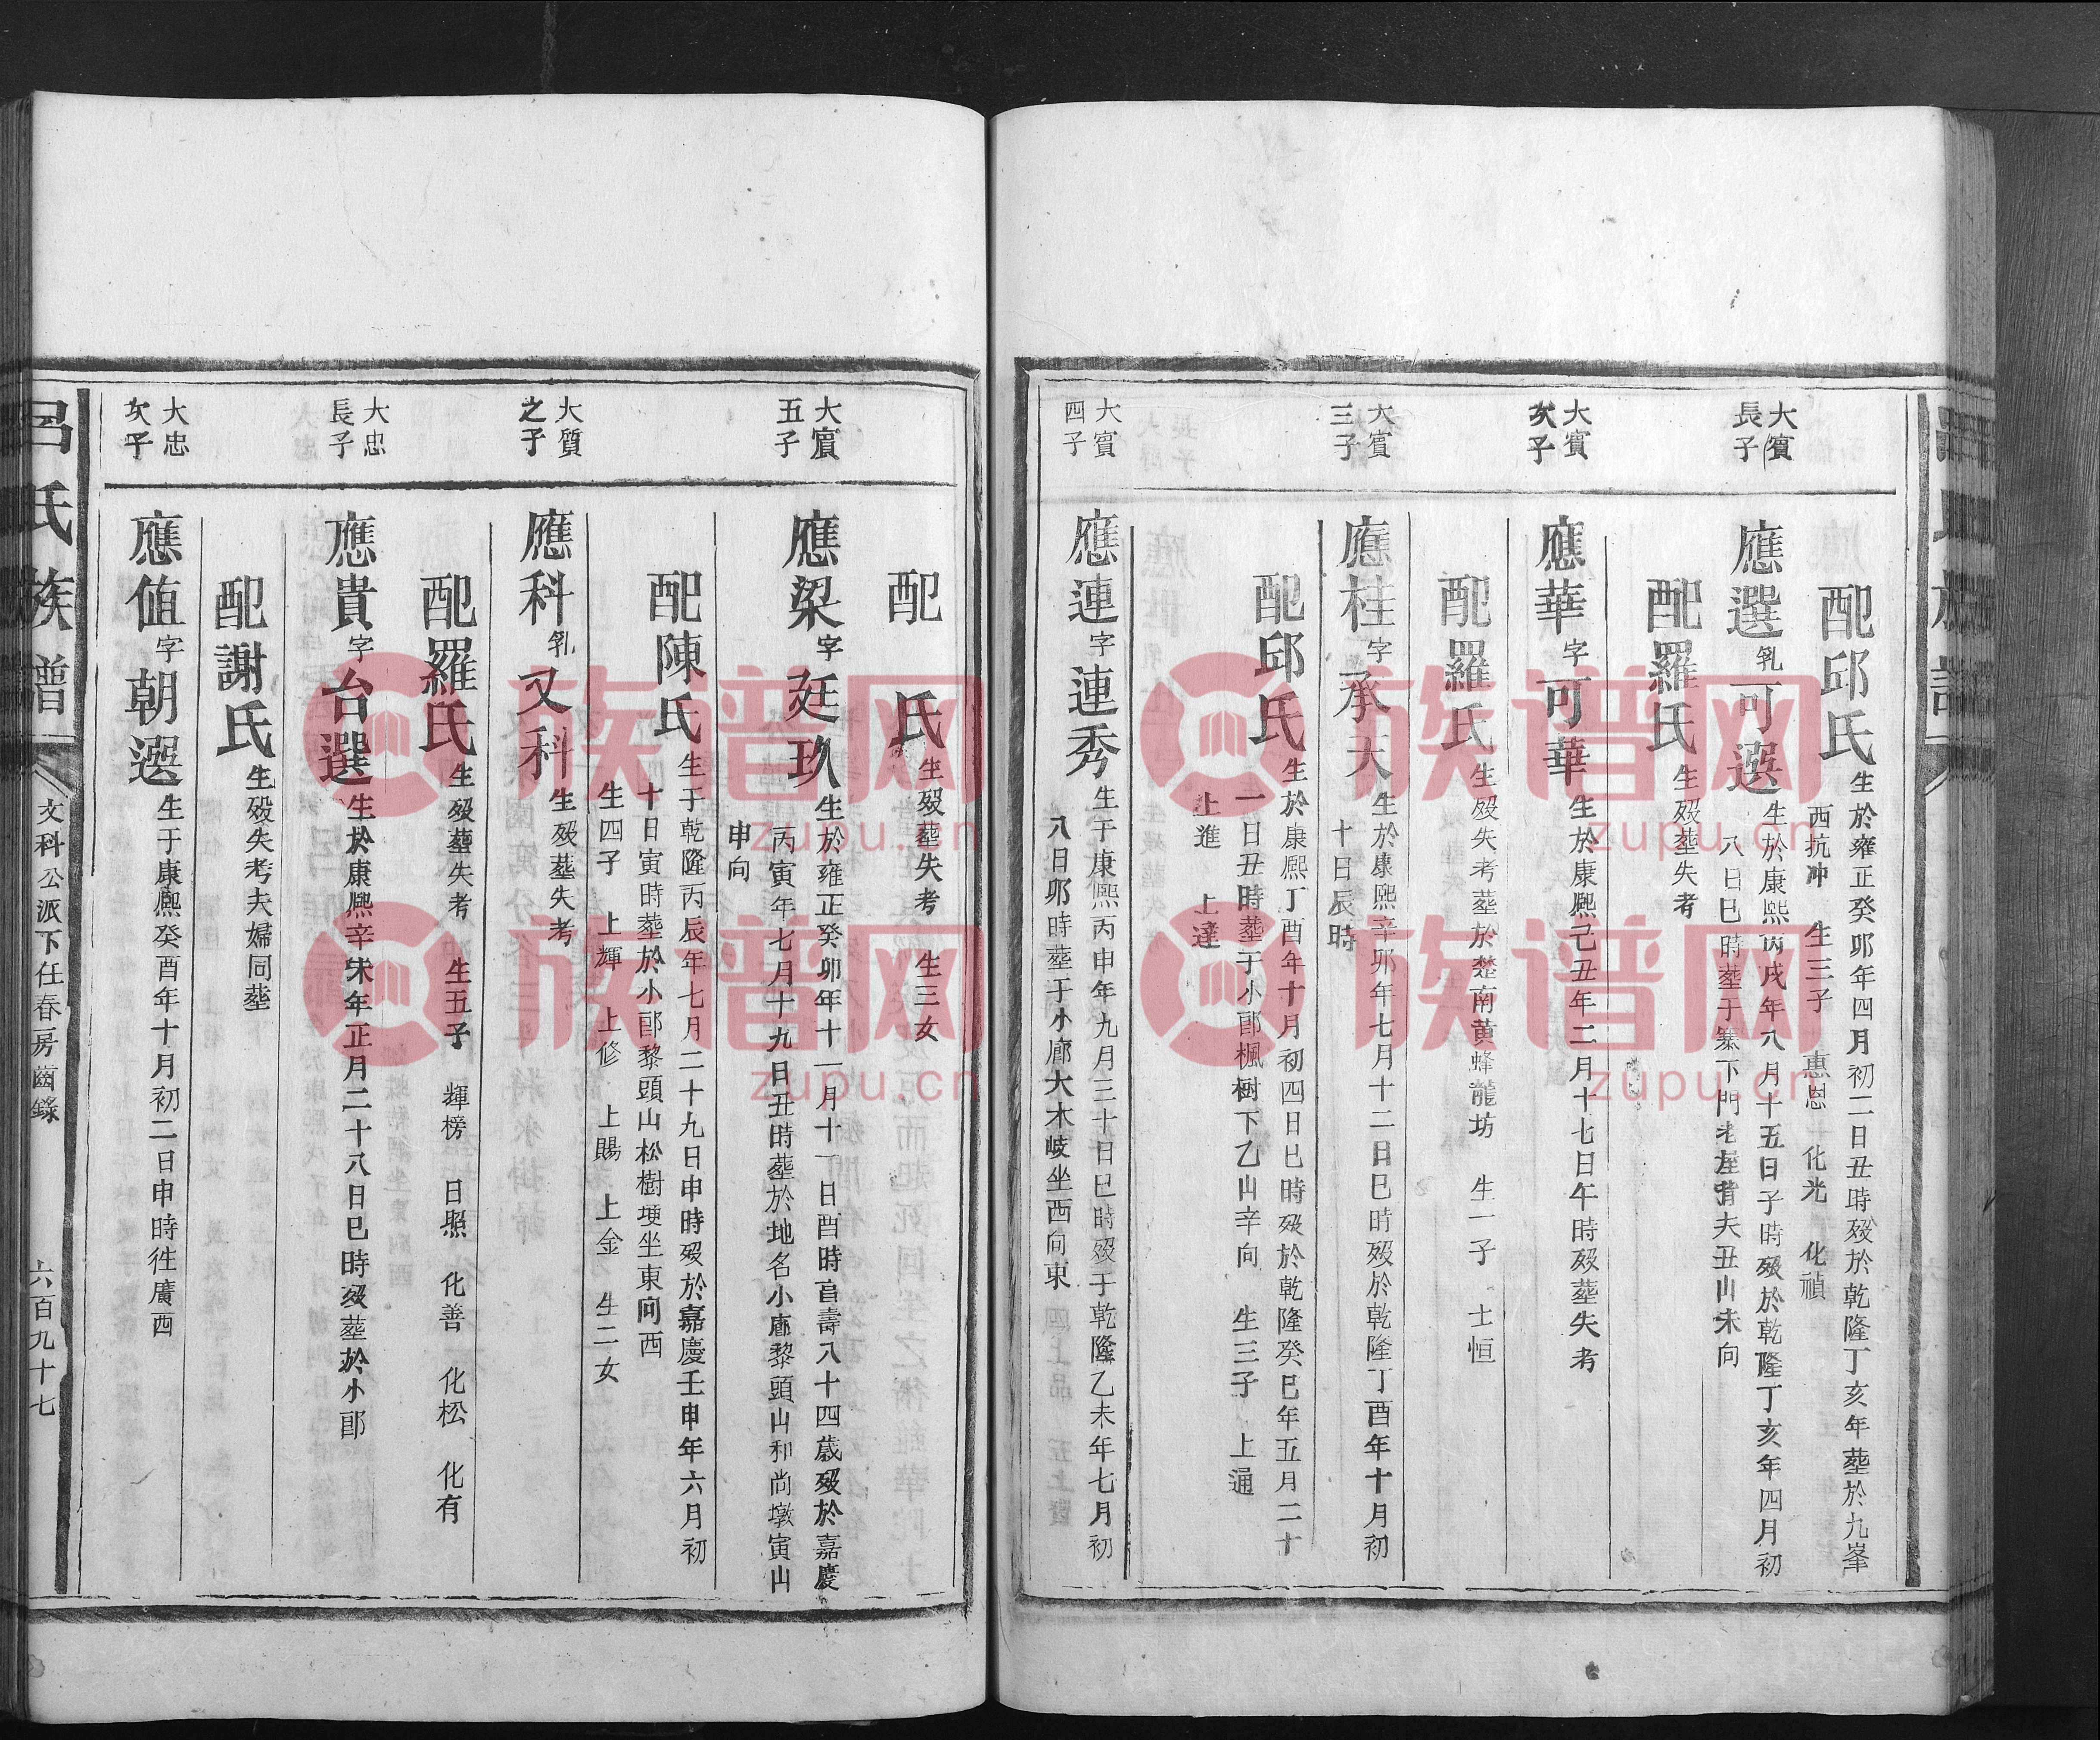 配邱氏
生於雍正癸卯年四月初二日丑時歿於乾隆丁亥年塟於九峯
西抗冲 生三子 惠恩 化光 化禎
大賓
長子
應選乳可選
生於康熙丙戌年八月十五日子時歿於乾隆丁亥年四月初
八日巳時塟于寨下門老屋背夫丑山未向
配羅氏
生歿塟失考
大賓
次子
應華字可華
生於康熙己丑年二月十七日午時歿塟失考
配羅氏
生歿失考塟於楚南黄蜂龍坊 生一子 士恒
大賓
三子
應桂字承天
生於康熙辛卯年七月十二日巳時歿於乾隆丁酉年十月初
十日辰時
配邱氏
生於康熙丁酉年十月初四日巳時歿於乾隆癸巳年五月二十
一日丑時塟于小郿楓樹下乙山辛向 生三子 上通
上進 上達
大賓
四子
應連字連秀
生于康熙丙申年九月三十日巳時歿于乾隆乙未年七月初
八日卯時塟于小廊大木岐坐西向東
配 氏
生歿塟失考 生三女
大賓
五子
應梁字廷玖
生於雍正癸卯年十一月十一日酉時享壽八十四歲歿於嘉慶
丙寅年七月十九日丑時塟於地名小廊黎頭山和尚墩寅山
申向
配陳氏
生于乾隆丙辰年七月二十九日申時歿於嘉慶壬申年六月初
十日寅時塟於小郿黎頭山松樹埂坐東向西
生四子 上輝 上修 上賜 上金 生二女
大質
之子
應科乳又科
生歿塟失考
配羅氏
生歿塟失考 生五子 輝榜 日照 化善 化松 化有
大忠
長子
應貴字台選
生於康熙辛未年正月二十八日巳時歿塟於小郿
配謝氏
生歿失考夫婦同塟
大忠
次子
應值字朝選
生于康熙癸酉年十月初二日申時徃廣西
呂氏族譜
文科公派下任春房齒錄
六百九十七
族谱网
zupu.cn
族谱网
zupu.cn
族谱网
zupu.cn
族谱网
zupu.cn